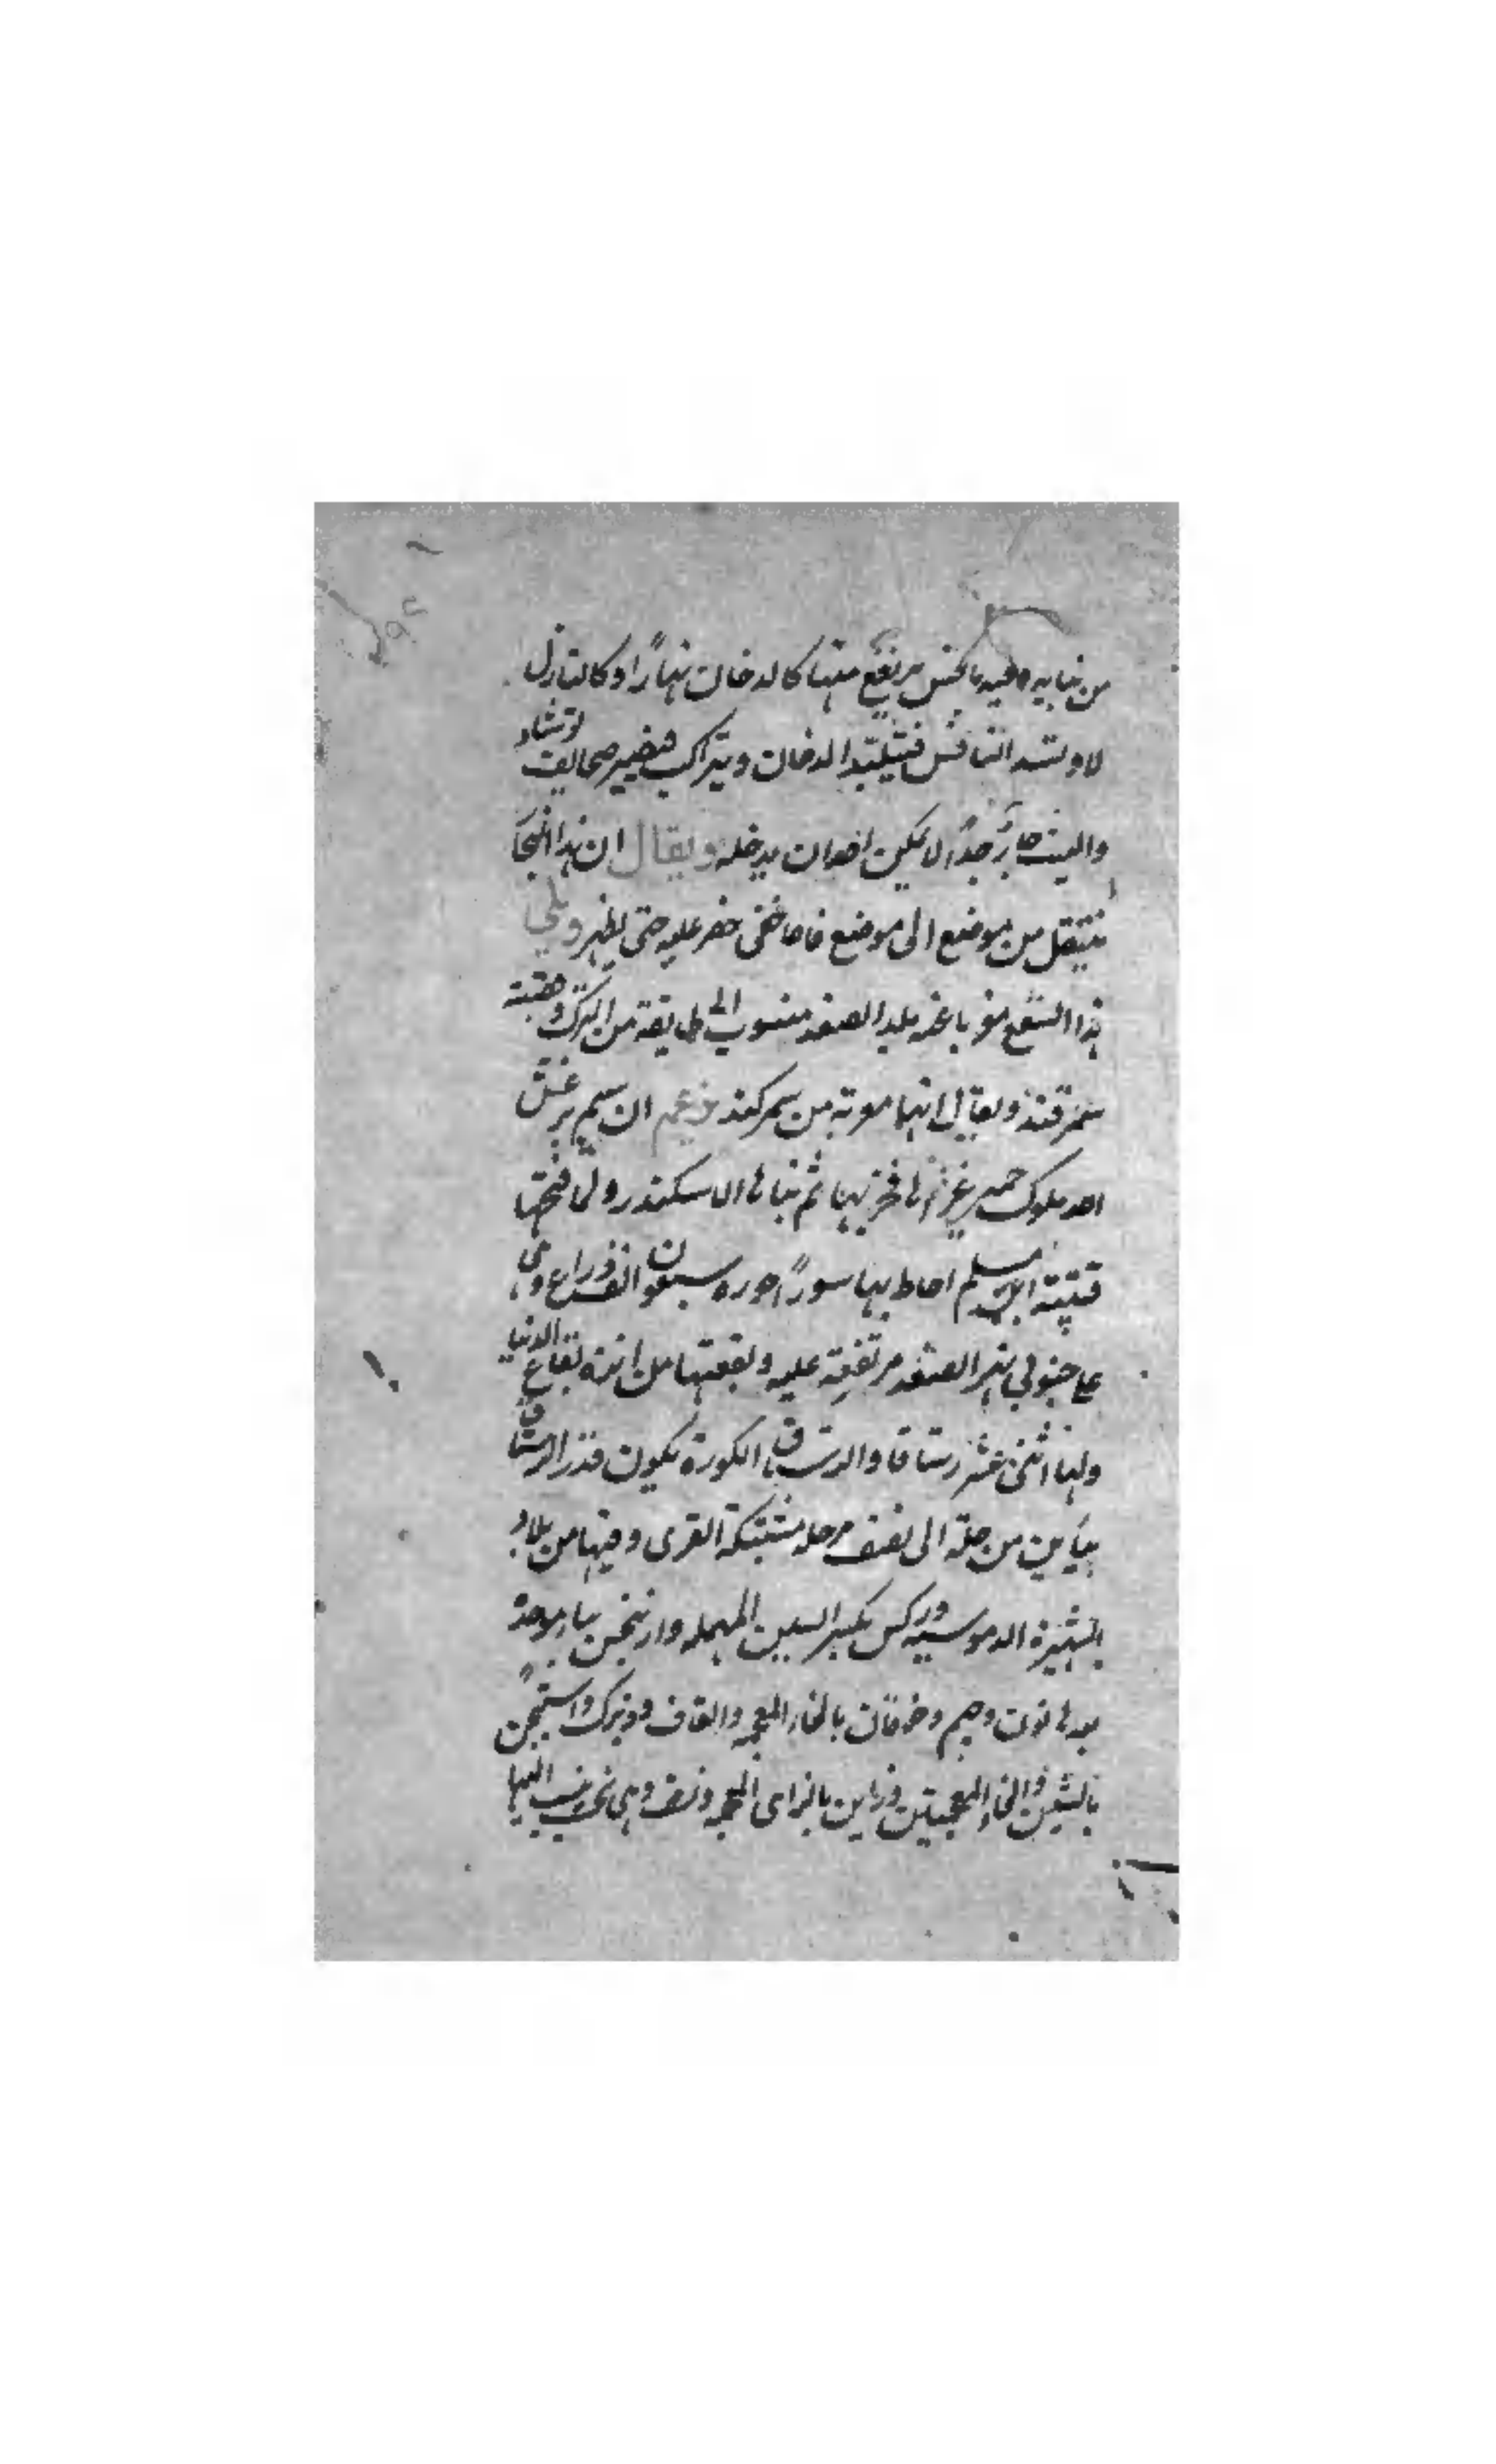 من بنائه وفيه بالحس يرتفع منها كالدخان نهارًا وكالنار ل
لا و لسد المنافس فيتلبد الدخان ويتراكب فيصير صحايف نوشاد
والبيت حار جدًا لا يمكن احدا ان يدخله ويقال ان هذا البخا
ينتقل من موضع الى موضع فاذا خفى حفر عليه حتى يظهر ويلي
هذا السقع بلد الصغد منسوب الى طايفة من الترك وقصبته
سمرقند ويقال انها معربة من سمركند زعم ان سمر يرعش
احد ملوك حمير غزاها فخربها ثم بناها الاسكندر ولما فتحها
قتيبة ابن مسلم احاط بها سورًا دوره سبعون الف ذراع وهي
على جنوبي نهر الصغد مرتفعة عليه وبقعتها من انزه بقاع الدنيا
ولها اثنى عشر رستاقا والرستاق الكورة يكون قدر الرستاق
مرحلة الى نصف مرحله مشتبكة القرى وفيها من بلاد
الشهيرة الدموسيه وركس بكسر السين المهمله واربنجن بباء موحدة
بعدها نون وجيم وخرقان بالخاء المعجمه والقاف ودبزك واستيخن
بالشين والخاء المعجمتين وزامين بالزاى المعجمه ونسف وهي نخشب اليها